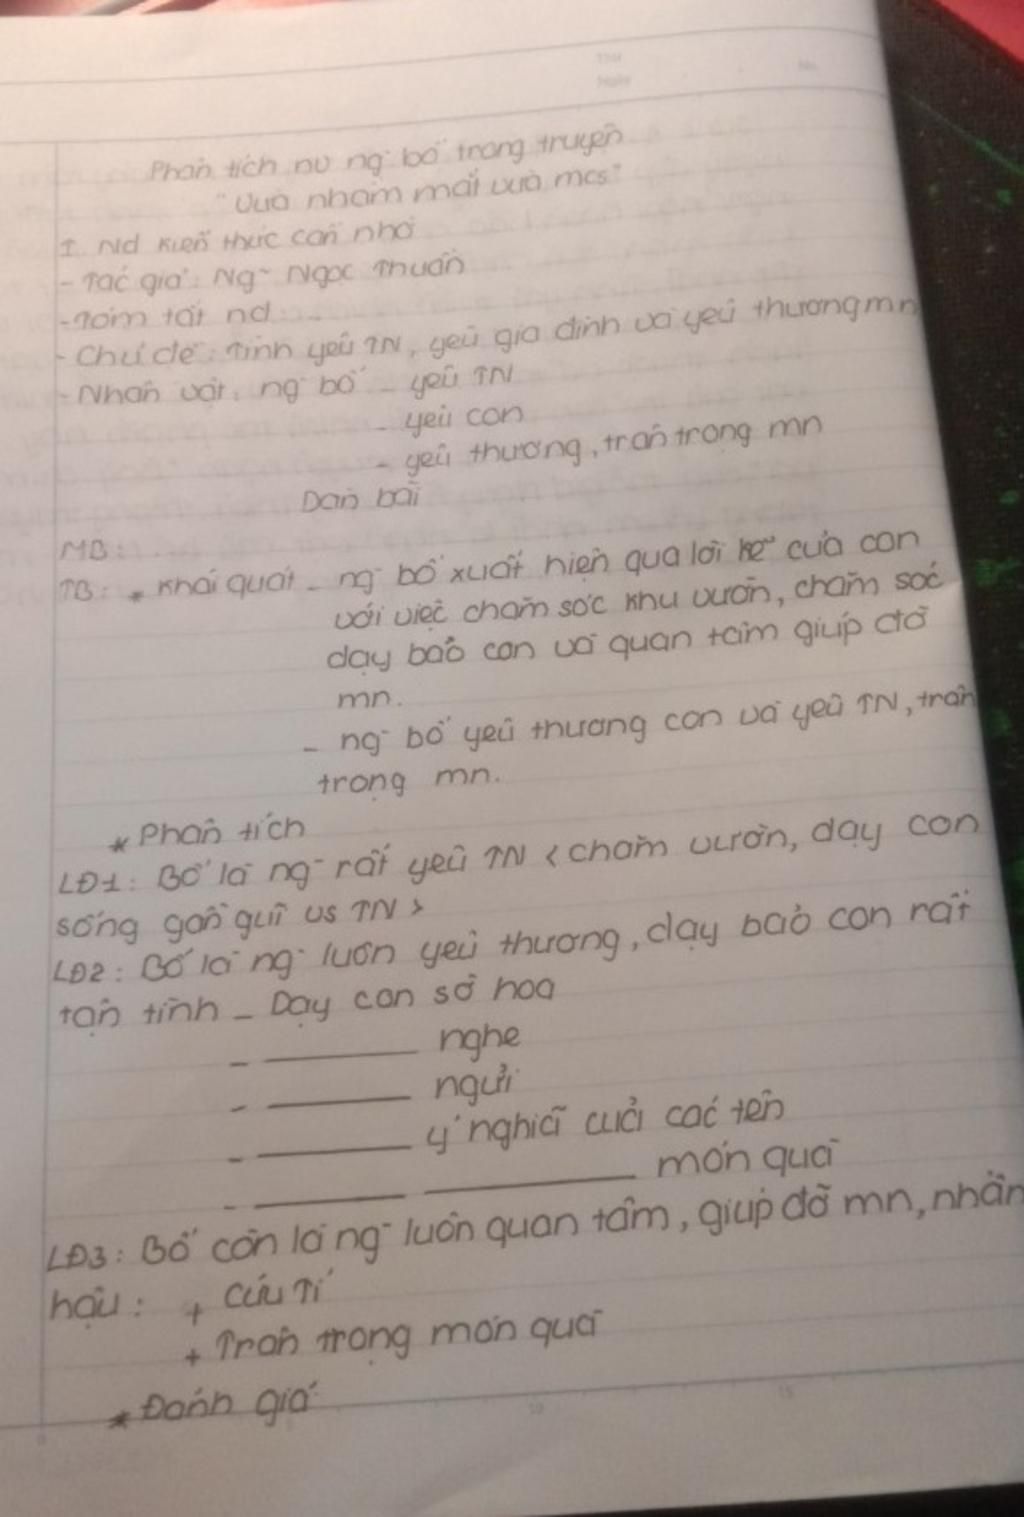 Phân tích nv ng` bố trong truyện
"Vừa nhắm mắt vừa mcs"
I. Nd kiến thức cần nhớ
- Tác giả: Ng~ Ngọc Thuần
- Tóm tắt nd ...
- Chủ đề: Tình yêu TN, yêu gia đình và yêu thương mn
- Nhân vật: ng` bố - yêu TN
- yêu con
- yêu thương, trân trọng mn
Dàn bài
MB:
TB: * Khái quát - ng` bố xuất hiện qua lời kể của con
với việc chăm sóc khu vườn, chăm sóc
dạy bảo con và quan tâm giúp đỡ
mn.
- ng` bố yêu thương con và yêu TN, trân
trọng mn.
* Phân tích
LĐ1: Bố là ng` rất yêu TN < chăm vườn, dạy con
sống gần gũi vs TN >
LĐ2: Bố là ng` luôn yêu thương, dạy bảo con rất
tận tình - Dạy con sờ hoa
- ______ nghe
- ______ ngửi
- ______ ý nghĩa của các tên
- ______ ______ món quà
LĐ3: Bố còn là ng` luôn quan tâm, giúp đỡ mn, nhân
hậu: + Cứu Tí
+ Trân trọng món quà
* Đánh giá